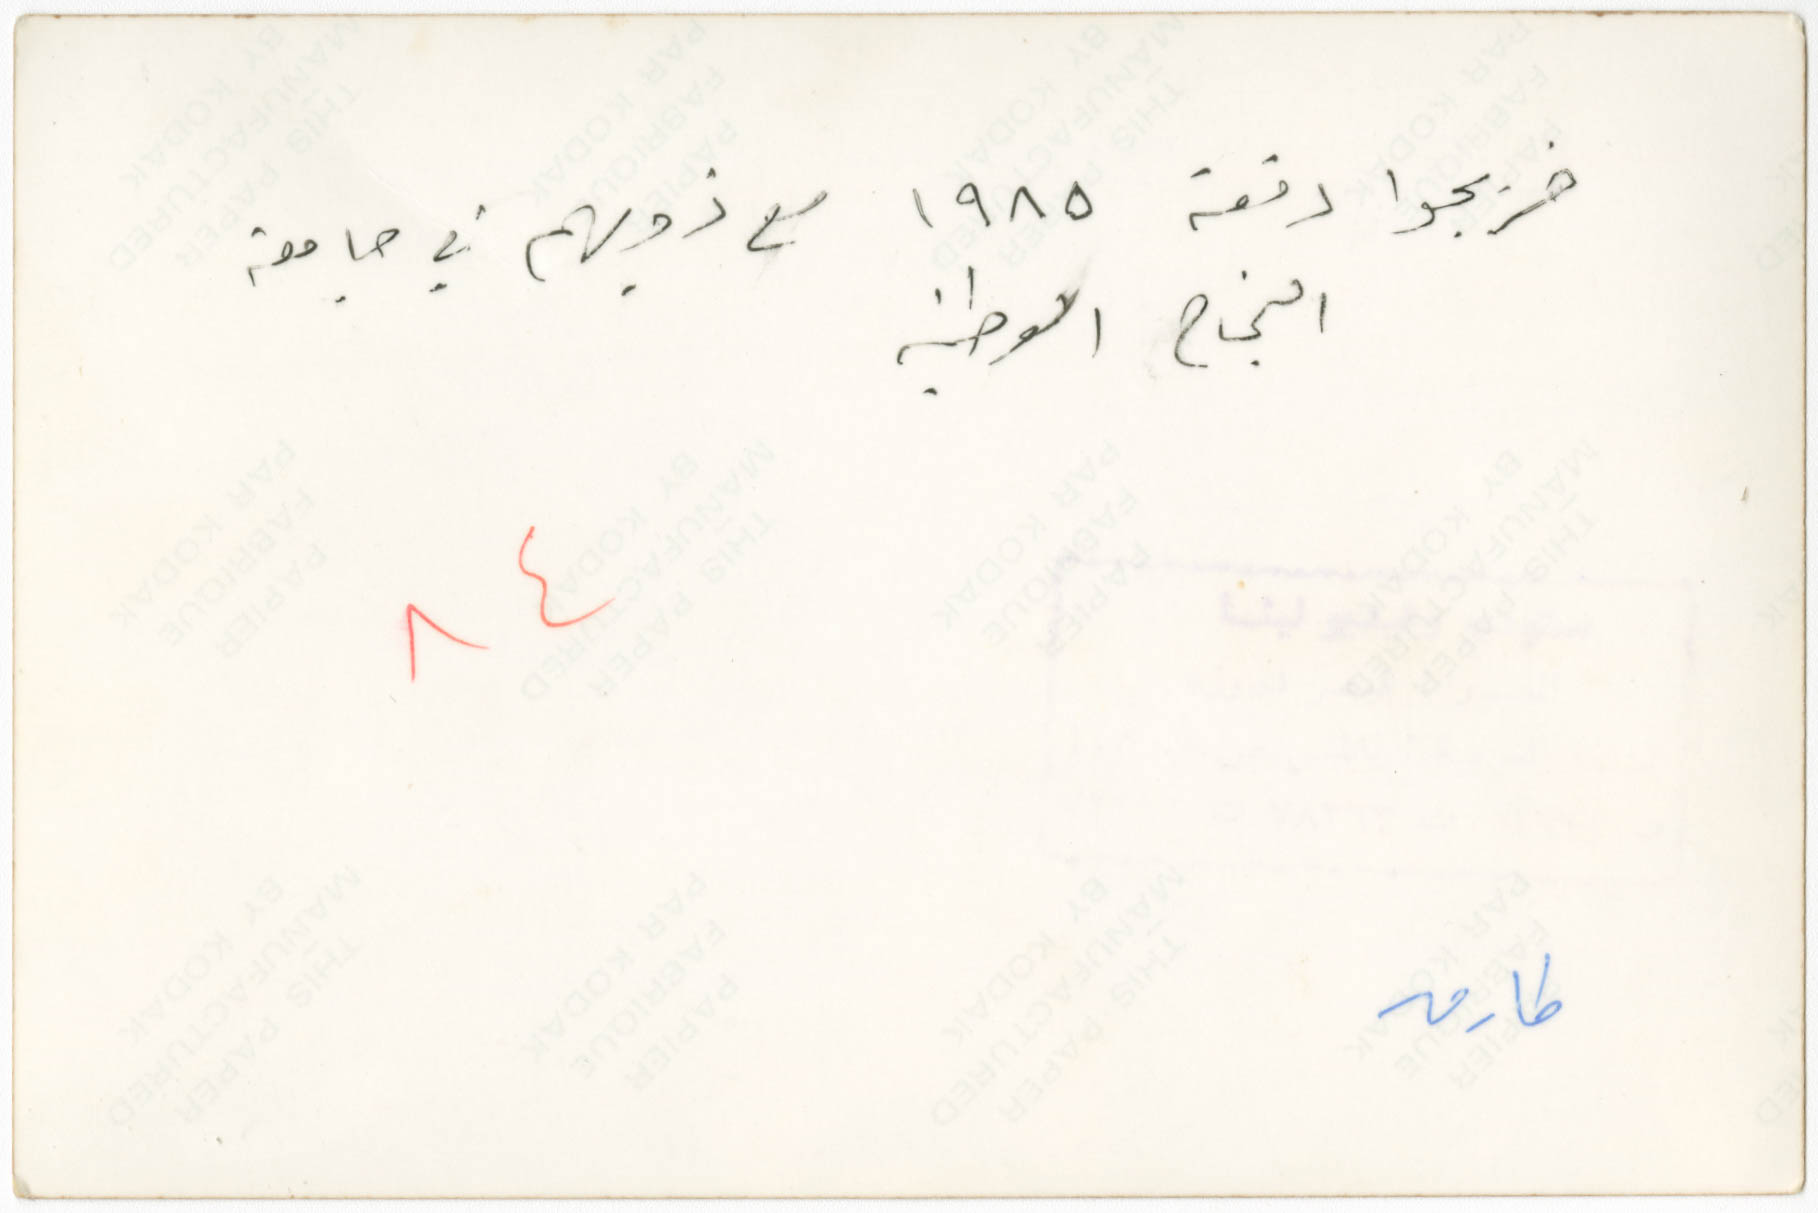 خريجوا دفعة ١٩٨٥ مع ذويهم في جامعة
النجاح الوطنية
٨٤
طارق
THIS PAPER
MANUFACTURED
BY KODAK
PAPIER
FABRIQUE
PAR KODAK